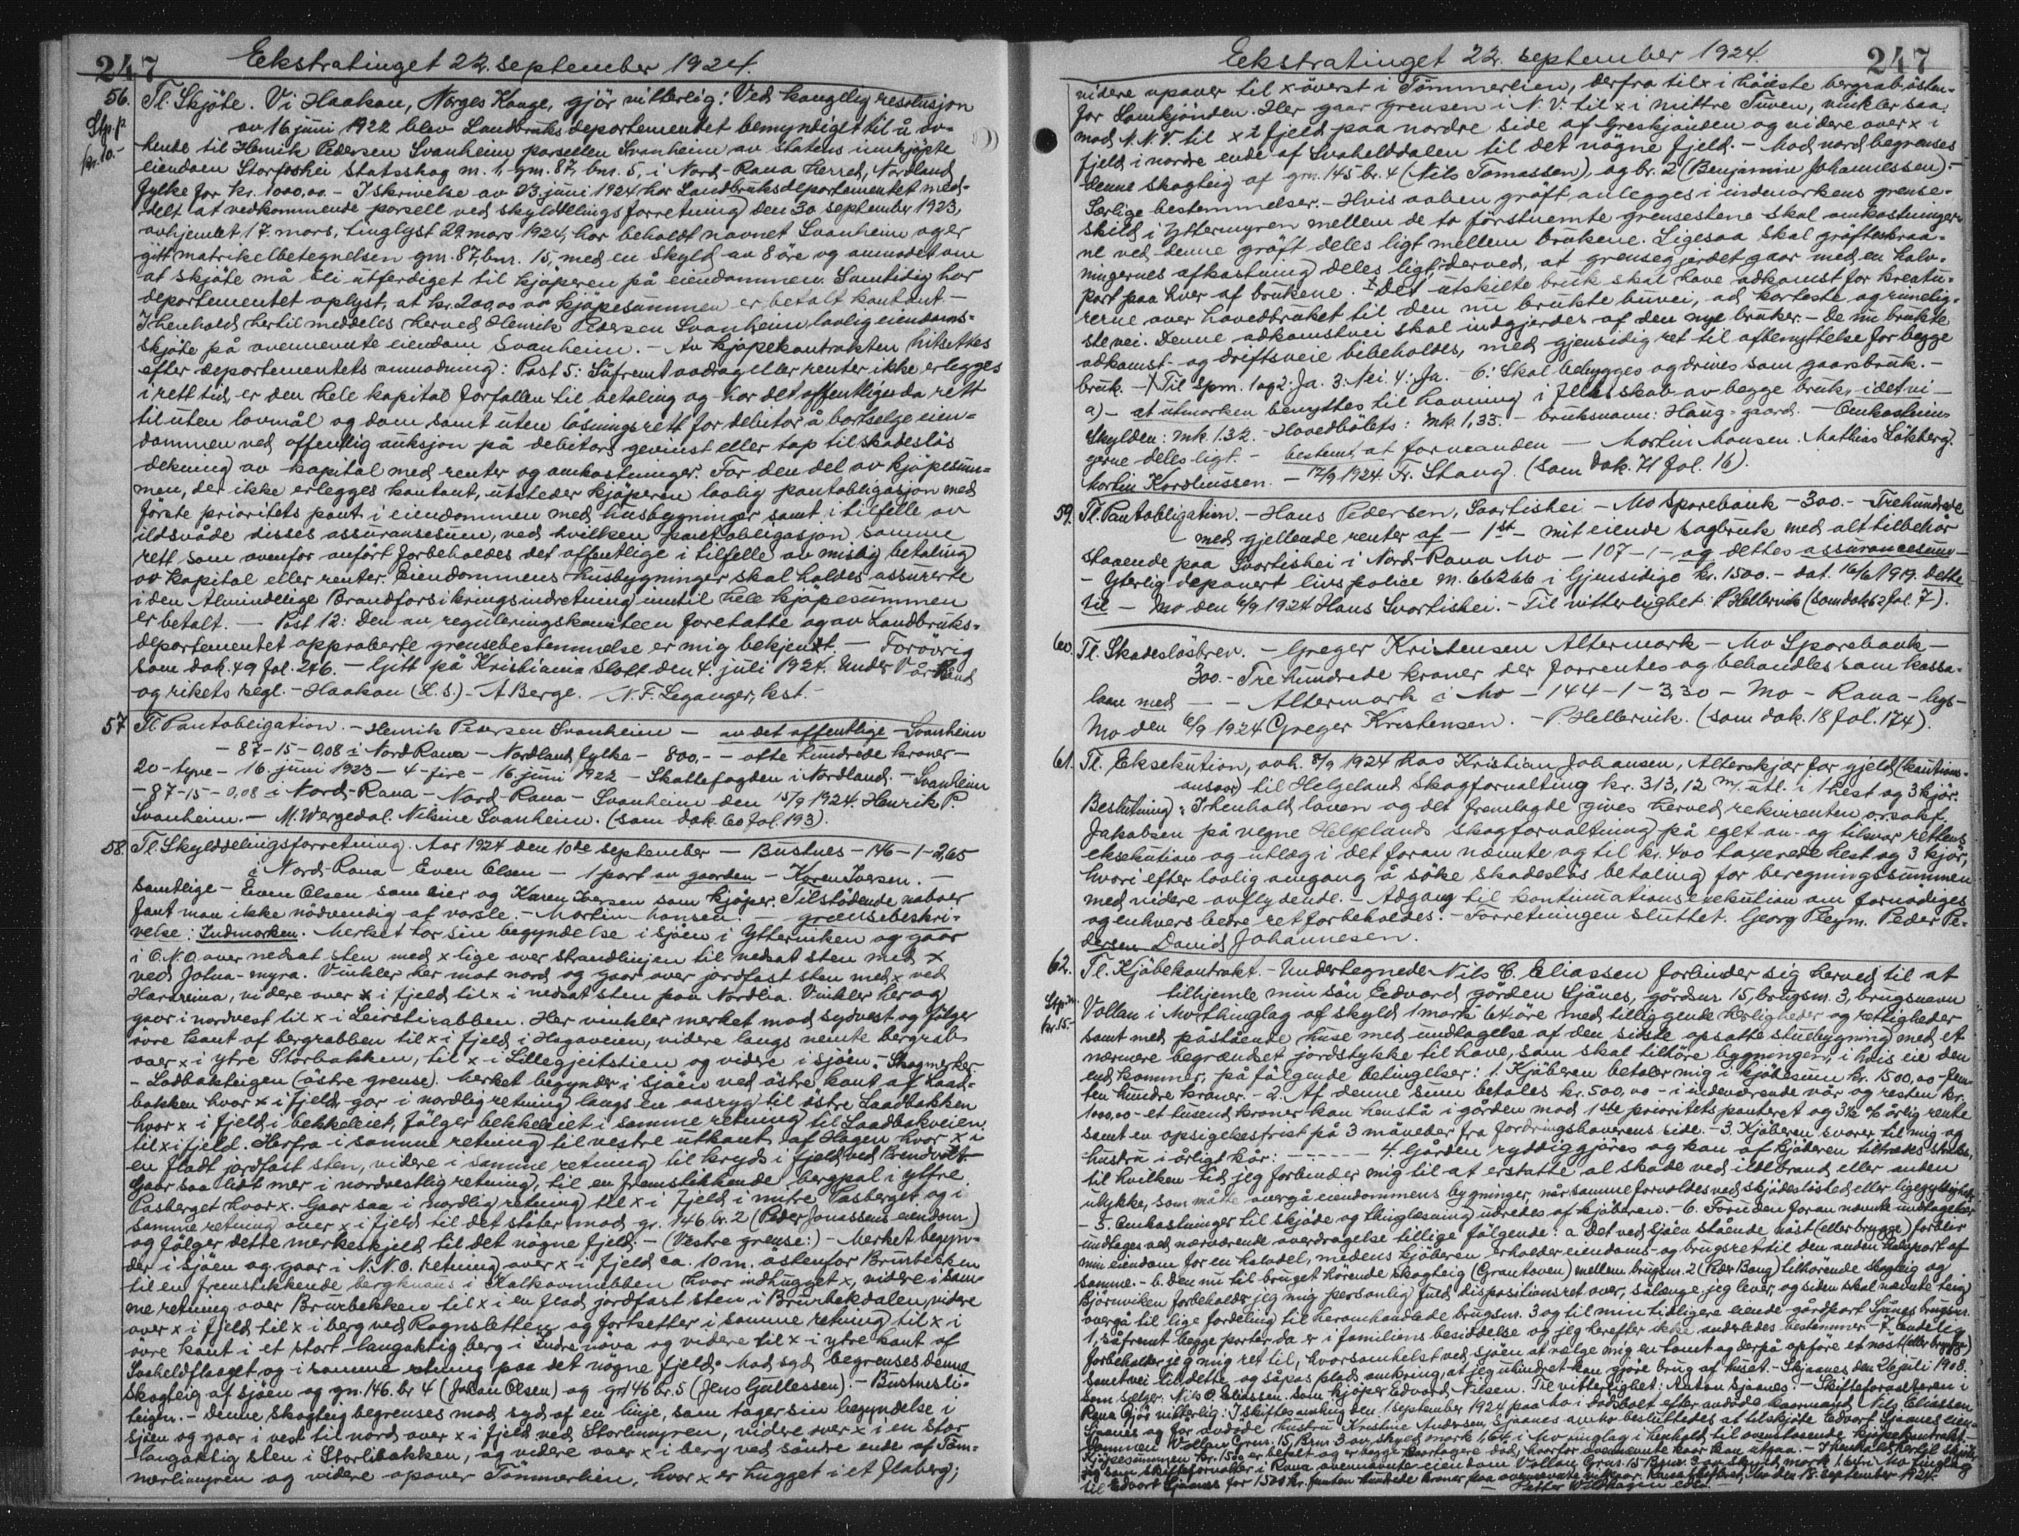 247 Ekstratinget 22. september 1924.
56. Tl. Skjöte. Vi Haakon, Norges Konge, gjör vitterlig: Ved kongelig resolusjon
Stp. p. kr. 10.-
av 16 juni 1922 blev Landbruksdepartementet bemyndiget til å av-
hende til Henrik Pedersen Svanheim parsellen Svanheim av statens innkjöpte
eiendom Storforshei Statsskog m. 1, gnr. 87, bnr. 5, i Nord-Rana herred, Nordland
fylke for kr. 1000,00. - I skrivelse av 23 juni 1924 har Landbruksdepartementet med-
delt at vedkommende parsell ved skylddelingsforretning den 30 september 1923,
avhjemlet 17. mars, tinglyst 29. mars 1924, har beholdt navnet Svanheim og er
gitt matrikelbetegnelsen gnr. 87, bnr. 15, med en skyld av 8 öre og anmodet om
at skjöte må bli utferdiget til kjöperen på eiendommen. Samtidig har
departementet oplyst, at kr. 200,00 av kjöpesummen er betalt kontant. -
I henhold hertil meddeles herved Henrik Pedersen Svanheim lovlig eiendoms-
skjöte på ovennevnte eiendom Svanheim. - Av kjöpekontrakten hitsettes
efter departementets anmodning: Post 5: Såfremt avdrag eller renter ikke erlegges
i rett tid, er den hele kapital forfallen til betaling og har det offentlige da rett
til uten lovmål og dom samt uten lösningsrett for debitor å bortselge eien-
dommen ved offentlig auksjon på debitors gevinst eller tap til skadeslös
dekning av kapital med renter og omkostninger. For den del av kjöpesum-
men, der ikke erlegges kontant, utsteder kjöperen lovlig pantobligasjon med
förste prioritets pant i eiendommen med husbygninger samt i tilfelle av
ildsvåde disses assuransesum, ved hvilken pantobligasjon samme
rett som ovenfor anfört forbeholdes det offentlige i tilfelle av mislig betaling
av kapital eller renter. Eiendommens husbygninger skal holdes assurerte
i den Almindelige Brandforsikringsindretning inntil hele kjöpesummen
er betalt. - Post 12: Den av reguleringskomiteen foretatte og av Landbruks-
departementet approberte grensebestemmelse er mig bekjent. - Forövrig
som dok. 49 fol. 246. - Gitt på Kristiania slott den 4. juli 1924. Under Vår Hånd
og rikets segl. - Haakon (L. S.). - A Berge. N. F. Leganger, kst. -
57 Tl. Pantobligation. - Henrik Pedersen Svanheim - av det offentlige - Svanheim
- 87-15-0,08 i Nord Rana - Nordland fylke - 800,- - otte hundrede kroner -
20-tyve - 16. juni 1923 - 4-fire - 16. juni 1922 - Skattefogden i Nordland. - Svanheim
- 87-15-0,08 i Nord-Rana - Nord Rana - Svanheim den 15/9 1924. Henrik P.
Svanheim. - M. Wergedal. Nilsine Svanheim. (som dok. 60 fol. 193).
58. Tl. Skylddelingsforretning. Aar 1924 den 10de september - Bustnes - 146-1-2,65
i Nord-Rana - Even Olsen - 1 part av gaarden - Karen Iversen. -
samtlige - Even Olsen som eier og Karen Iversen som kjöper. Tilstödende naboer
fant man ikke nödvendig at varsle. - Martin Monsen. - grænsebeskri-
velse: Indmarken. Merket tar sin begyndelse i sjöen i Ytterviken og gaar
i O.N.O. over nedsat sten med x lige over strandlinjen til nedsat sten med x
ved Johna-myra. Vinkler her mot nord og gaar over jordfast sten med x ved
Harareina, videre over x i fjeld til x i nedsat sten paa Nordlia. Vinkler her og
gaar i nordvest til x i Leirstirabben. Her vinkler merket mod sydvest og fölger
övre kant af bergrabben til x i fjeld i Hagaveien, videre langs nevnte bergrab
over x i ytre Storbakken, til x i Lillegjeitstien og videre i sjöen. - Skogmerker.
- Ladbakteigen (östre grense). Merket begynder i sjöen ved östre kant af Laad-
bakken hvor x i fjeld, gaar i nordlig retning langs en aasryg til östre Laadbakken
hvor x i fjeld i bekkeleiet, fölger bekkeleiet i samme retning til Laadbakveien
til x i fjeld. Herfra i samme retning til vestre utkant af Hagen hvor x i
en fladt jordfast sten, videre i samme retning til kryds i fjeld ved
Gaar saa lidt mer i nordvestlig retning, til en fremstikkende bergpal i ytre
Pasberget hvor x. Gaar saa i nordlig retning til x i fjeld i indre Pasberget og i
samme retning over x i fjeld til det stöter mod gr. 146 br. 2 (Peder Jonassens eiendom)
og fölger dette merkeskjeld til det nögne fjeld. - (Vestre grense:) - Merket begyn-
der i sjöen og gaar i N.N.O. retning over x i fjeld ca. 10 m. östenfor Brurbekken
til en fremstikkende bergknaus i Kalkovnnubben hvor indhugget x, videre i sam-
me retning over Brurbekken til x i en flad jordfast sten i Brurbekdalen, videre
over x i fjeld til x i berg ved Rognsletten og fortsetter i samme retning til x i
övre kant i et stort langaktig berg i Indre nova og videre til x i ytre kant af
Svaheldflaaget og i samme retning paa det nögne fjeld. Mod syd begrenses denne
skogteig af sjöen og gn. 146. br 4 (Johan Olsen) og gn 146 br. 5 (Jens Gullessen). - Bustnesli-
teigen. - Denne skogteig begrenses mod syd af en linje, som tager sin begyndelse i
sjöen og gaar i vest til nord over x i fjeld ved Storlimyren, videre over x i en stor
langaktig sten i Storlibakken, og videre over x i berg ved söndre ende af Töm-
merlimyren og videre opover Tömmerlien, hvor x er hugget i et flaberg;
Ekstratinget 22. september 1924. 247
videre opover til x överst i Tömmerlien, derfra til x i höieste bergrab östen-
for Lomkjönden. Her gaar grensen i N.V. til x i mittre Tuven, vinkler saa
mod N.N.V. til x i fjeld paa nordre side af Greskjönden og videre over x i
fjeld i nordre ende af Svahelddalen til det nögne fjeld. - Mod nord begrenses
denne skogteig af gnr. 145 br. 4 (Nils Tomassen), og br. 2 (Benjamine Johannessen). -
Særlige bestemmelser. - Hvis aaben gröft anlegges i indmarkens grense-
skild i Yttermyren mellem de to förstnevnte grensestene skal omkostninger-
ne ved denne gröft deles ligt mellem brukene. Ligesaa skal gröftesbraa-
ningernes afkastning deles ligt, derved, at grensegjerdet gaar med en halv-
part paa hver af brukene. - Det utskilte bruk skal have adkomst for kreatu-
rerne over hovedbruket til den nu brukte buvei, ad korteste og rimelig-
ste vei. Denne adkomstvei skal indgjerdes af den nye bruker. - De nu brukte
adkomst- og driftsveie bibeholdes, med gjensidig ret til afbenyttelse for begge
bruk. - Til Spm. 1 og 2: Ja. 3: Nei. 4: Ja. - 6: Skal bebygges og drives som gaardsbruk. -
a) - at utmarken benyttes til havning i fellesskab av begge bruk, idet vi -
Skylden: mk. 1.32. - Hovedbölets: mk. 1,33. - bruksnavn: Haug-gaard. - Omkostnin-
gerne deles ligt. - bestemt, at foranstaaenden - Martin Monsen. Mathias Lökberg.
Martin Karoliussen. - 17/9 1924. Fr. Stang. (som dok. 71 fol. 16).
59. Tl. Pantobligation. - Hans Pedersen, Svartishei - Mo Sparebank - 300.- Trehundrede
- med gjellende renter af - 1st - mit eiende sagbruk med alt tilbehör
staaende paa Svortishei i Nord-Rana Mo - 107-1- og dettes assurancesum -
- Ytterlig deponert livspolice nr. 66266 i Gjensidige kr. 1500. - dat. 16/6 1919. dette
til - Mo den 6/9 1924 Hans Svortishei. - Til vitterlighet: P Hellervik (som dok 62 fol. 7).
60. Tl. Skadeslösbrev. - Greger Kristensen Altermark - Mo Sparebank -
300. - Tre hundrede kroner der forrentes og behandles som kassa-
laan med - - Altermark i Mo - 144-1-3,30 - Mo - Rana - lys -
Mo den 6/9 1924 Greger Kristensen. - P Hellervik. (som dok. 18 fol. 174).
61. Tl. Eksekution, avh. 8/9 1924 hos Kristian Johansen, Alterskjær for gjeld (kautions-
ansvar) til Helgeland Skogforvalting kr. 313,12 m/. utl. i 1 hest og 3 kjör.
Beslutning: I henhold loven og det fremlagte gives herved rekvirenten o.r.sakf.
Jakobsen på vegne Helgelands skogforvaltning på eget an- og tilsvar rettens
eksekution og utlæg i det foran nævnte og til kr. 400 taxerede hest og 3 kjör,
hvori efter lovlig omgang å söke skadeslös betaling for beregningssummen
med videre avflydende. - Adgang til kontinuationseksekution om fornödiges
og enhvers bedre ret forbeholdes. - Forretningen sluttet. Georg Pleym. Peder Pe-
dersen David Johannesen.
62. Tl. Kjöbekontrakt. - Undertegnede Nils C. Eliassen forbinder sig herved til at
Stp. m. kr. 15.-
tilhjemle min sön Eedvard gården Sjånes, gårdsnr. 15, brugsnr. 3, brugsnavn
Vollan i Mo thinglag af skyld 1 mark 64 öre med tilliggende herligheder og rettigheder
samt med påstående huse med undtagelse af den sidste opsatte stuebygning med et
nærmere begrændset jordstykke til have, som skal tilhöre bygningen, i hvis eie den
end kommer, på fölgende betingelser: 1. Kjöberen betaler mig i kjöbesum kr. 1500,00 - fem-
ten hundre kroner. - 2. Af denne sum betales kr. 500,00 - i indeværende vår og resten kr.
1000,00 - et tusend kroner kan henstå i gården mod 1ste prioritets panteret og 3½ % årlig rente
samt en opsigelsesfrist på 3 måneder fra fordringshaverens side. - 3. Kjöberen svarer til mig og
hustru i årligt kår: - . - . - 4. Gården ryddiggjöres og kan af kjöberen tiltrædes straks,
til hvilken tid jeg forbinder mig til at erstatte al skade ved ildebrand eller anden
ulykke, som måtte overgå eiendommens bygninger, når samme forvoldes ved skjödeslöshed eller ligegyldighet.
- 5. Omkostninger til skjöde og thinglæsning udredes af kjöberen. - 6. Foruden foran nævnte undtagelser
undtages ved nærværende overdragelse tillige fölgende: a Det ved sjöen stående nöst (eller brygge) forbliver
min eiendom for en halvdel, medens kjöberen erholder eiendoms- og brugsret til den anden halvpart af
samme. - b. Den nu til bruget hörende skogteig (Grantoven) mellem brugsnr. 2 (Peder Bang) tilhörende skogteig og
Björnviken forbeholder jeg mig personlig fuld dispositionsret over, sålænge jeg lever, og siden skal nævnte teig
overgå til lige fordeling til heromhandlede brugsnr. 3 og til min tidligere eiende gårdpart Sjånes brugsnr.
1, såfremt begge parter da er i familiens besiddelse og jeg herefter ikke anderledes bestemmer. - 7. Endelig
forbeholder jeg mig ret til, hvorsomhelst ved sjöen at vælge mig en tomt og derpå opföre et nöst (eller brygge)
samt vei til dette og såpas plads omkring, at jeg uhindret kan gjöre brug af huset. - Sjaanes den 26 juli 1908.
Som selger: Nils C. Eliassen. Som kjöper Edvard Nilsen. Til vitterlighet: Anton Sjaanes. - Skifteforvalteren i
Rana Gjör vitterlig: I skiftesamling den 1 september 1924 paa Mo i dödsboet efter avdöde kaarmand Nils Eliassen
Sjaanes og for avdöde hustru Kristine Andersen, Sjaanes besluttedes at tilskjöte Edvart Sjaanes eien-
dommen Vollan Gnr. 15, Brnr. 3 av skyld mark 1,64 i Mo tinglag i henhold til ovenstaaende kjöpekontrakt.
Kjöpesummen kr. 1500 er betalt og er begge kaartagere död, hvorfor ovennevnte kaar kan utgaa. - I henhold hertil skjöter
jeg som skifteforvalter i Rana ovennevnte eiendom Vollan Gnr. 15 Brnr. 3 av skyld mark 1,64 i Mo tinglag
til Edvart Sjaanes for 1500 kr. femten hundrede kroner paa ovennevnte vilkaar. Rana skifteret, Mo den 18. september 1924.
- Petter Wildhagen